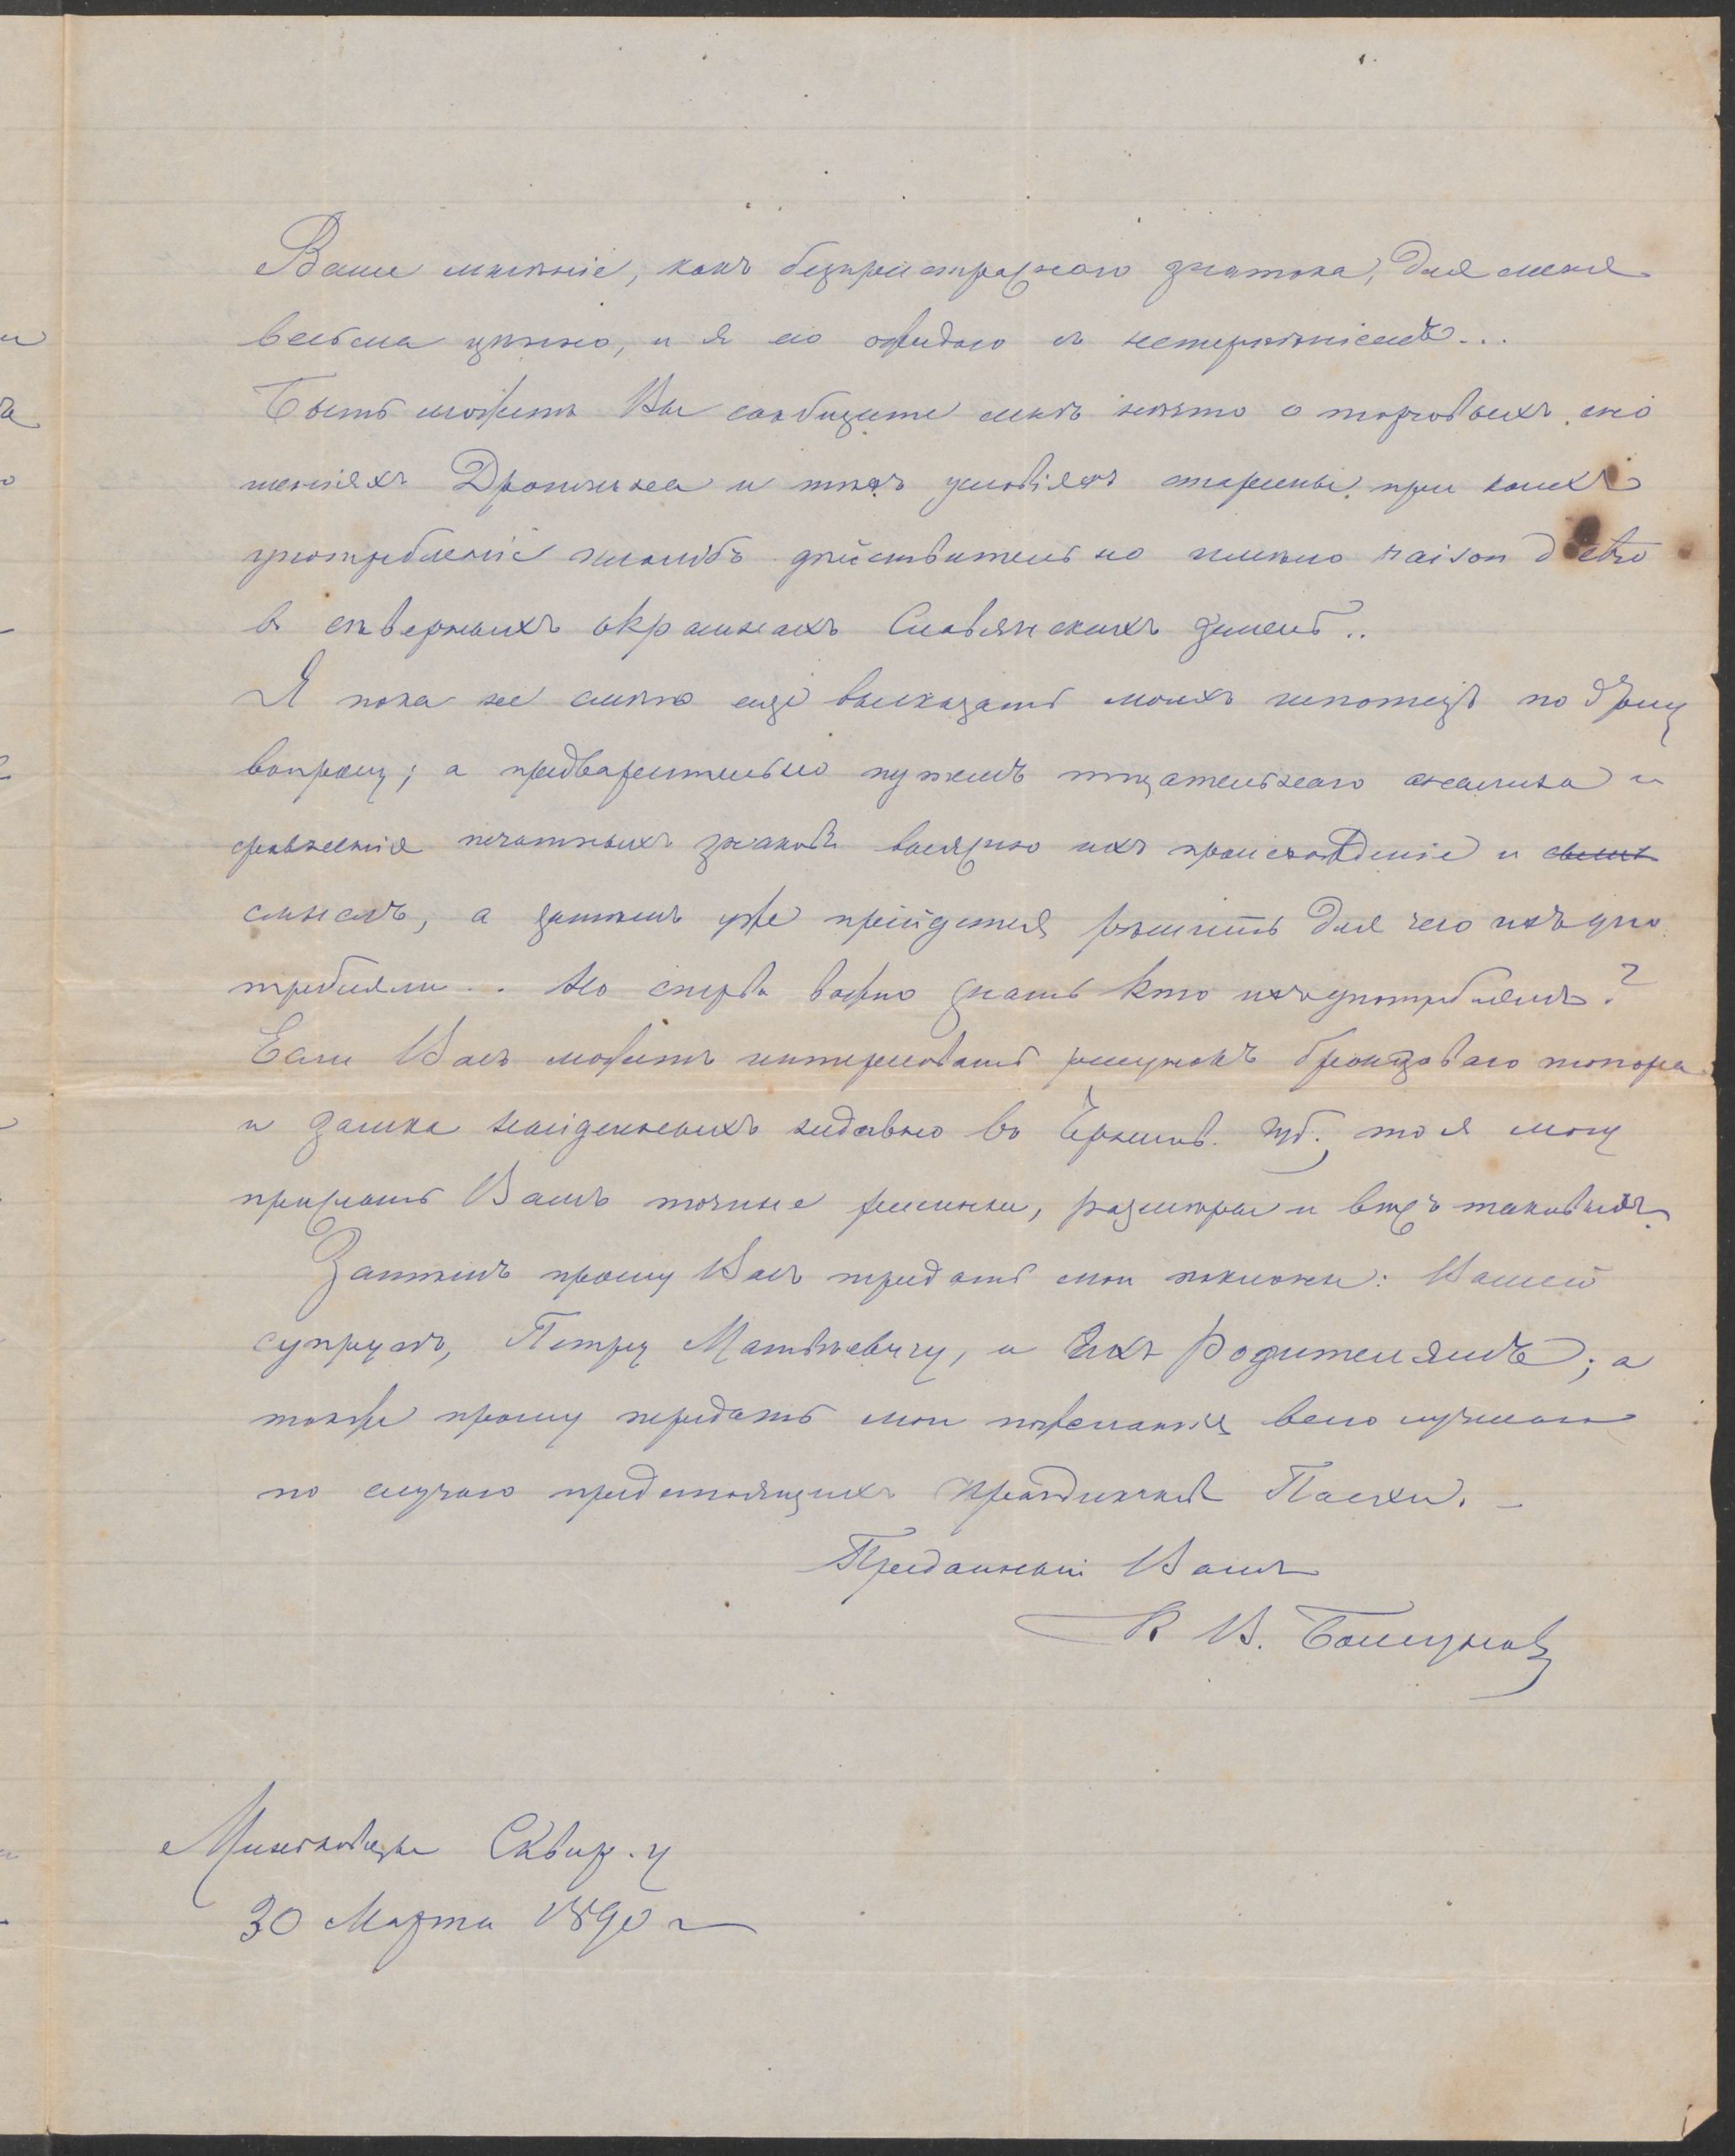 Ваше мнѣніе, какъ безпристрастнаго знатока, для меня
весьма цѣнно, и я его ожидаю съ нетерпѣніемъ...
Быть можетъ Вы сообщите мнѣ нѣчто о торговыхъ сно
шеніяхъ Дрогичина и тѣхъ условіяхъ старины, при коихъ
употребленіе пломбъ дѣйствительно имѣло raison d'etre
въ сѣверныхъ окраинахъ Славянскихъ земель..
Я пока не смѣю еще высказать моихъ гипотезъ по этому
вопросу; а предварительно путемъ тщательнаго анализа и
сравненія печатныхъ знаковъ выясню ихъ происхожденіе и
смыслъ, а затѣмъ уже прійдется рѣшить для чего ихъ упо
требляли.. Но сперва важно знать кто ихъ употреблялъ?
Если Васъ можетъ интересовать рисунокъ бронзоваго топора
и замка найденныхъ недавно въ губ., то я могу
прислать Вамъ точные рисунки, размѣры и вѣсъ таковыхъ.
Затѣмъ прошу Васъ передать мои поклоны: Вашей
супругѣ, Петру Матвѣевичу, и Ихъ Родителямъ; а
также прошу передать мои пожеланія всего лучшаго
по случаю предстоящихъ праздниковъ Пасхи. –
Преданный Вамъ
К В. Болсуновъ
Миньковцы Сквир. у
30 Марта 1890 г